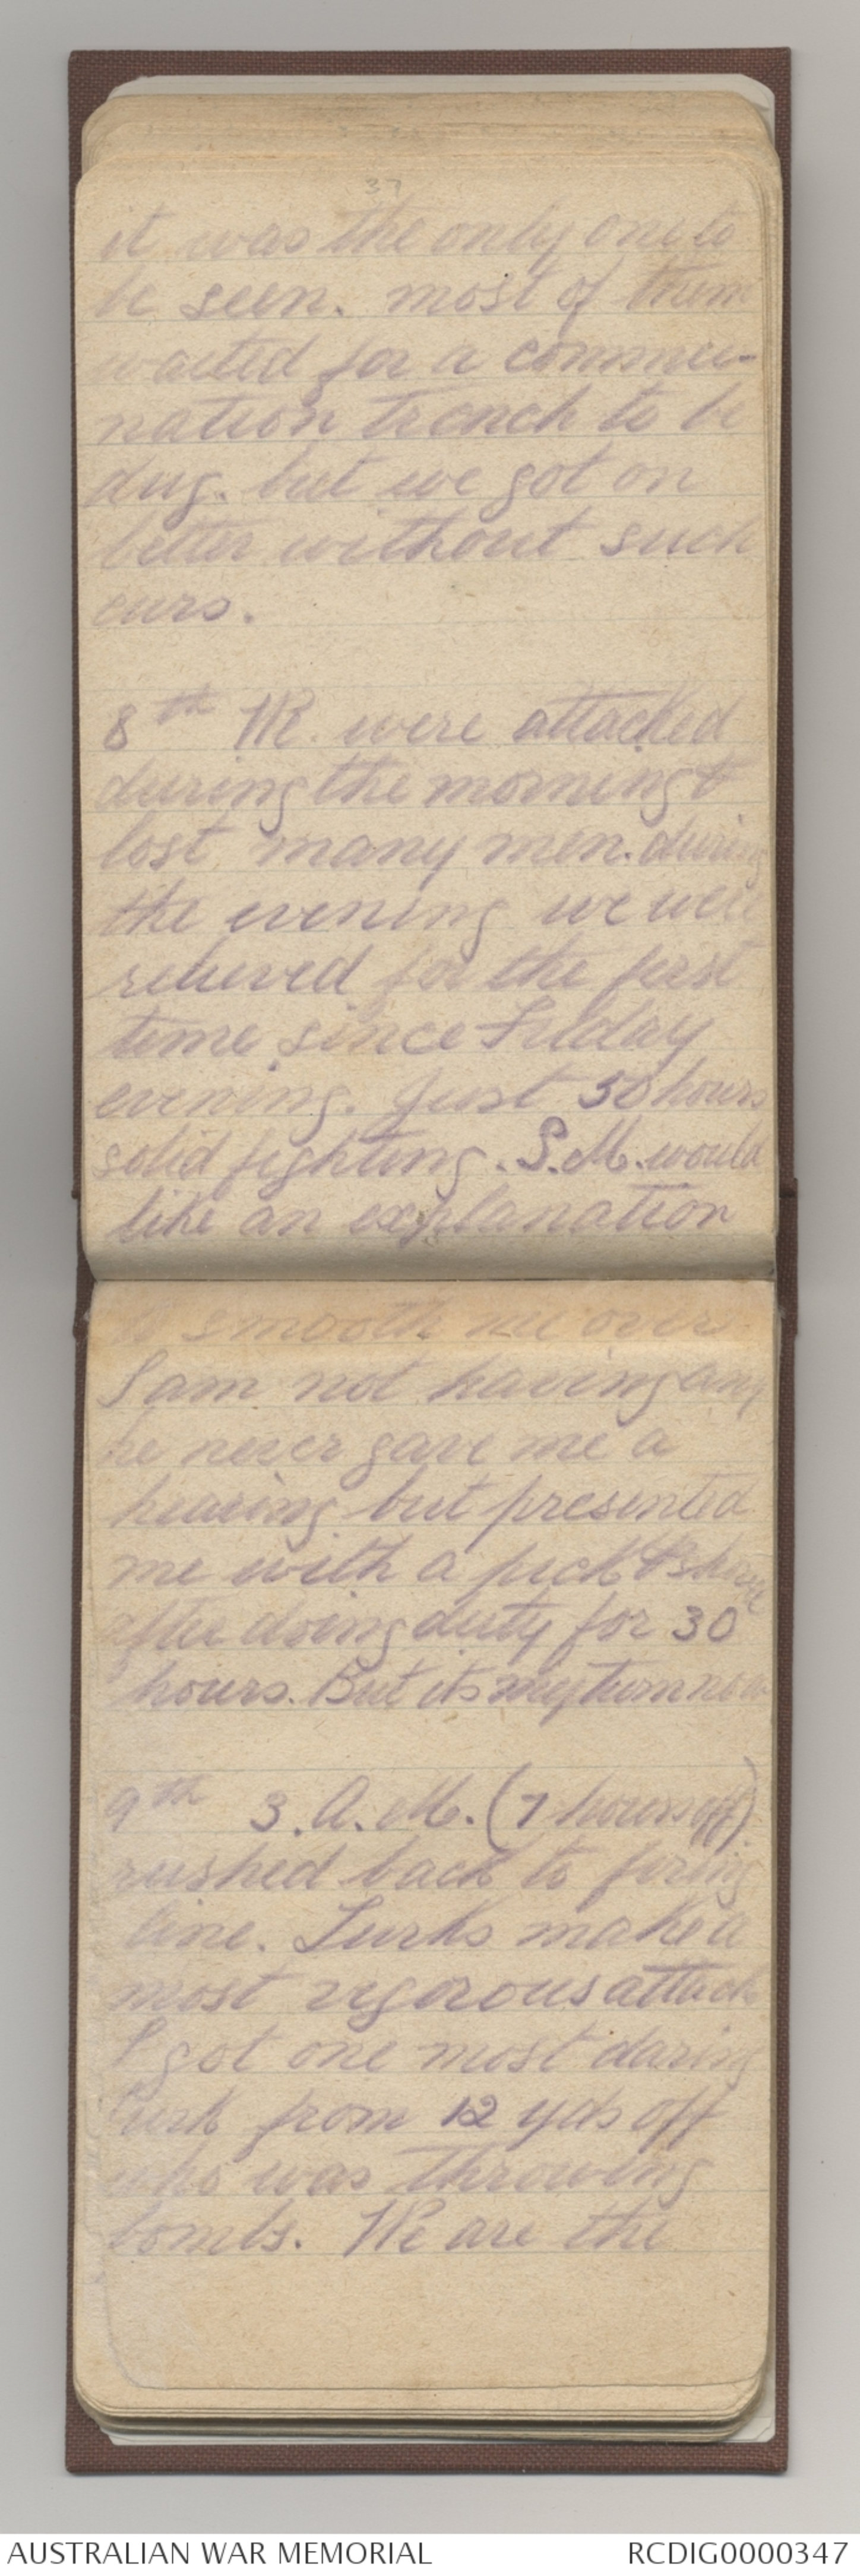 37
it was the only one to
be seen. most of them
waited for a commu-
nation trench to be
dug. but we got on
better without such
curs.
8th We were attacked
during the morning &
lost many men. during
the evening we were
relieved for the first
time since Friday
evening. Just 50 hours
solid fighting. S.M. would
like an explanation
to smooth me over
I am not having any
he never gave me a
hearing but presented
me with a pick & shovel
after doing duty for 30
hours. But its my turn now
9th 3. A.M. (7 hours off)
rushed back to firing
line. Turks make a
most vigorous attack
I got one most daring
Turk from 12 yds off
who was throwing
bombs. We are the
AUSTRALIAN WAR MEMORIAL
RCDIG0000347